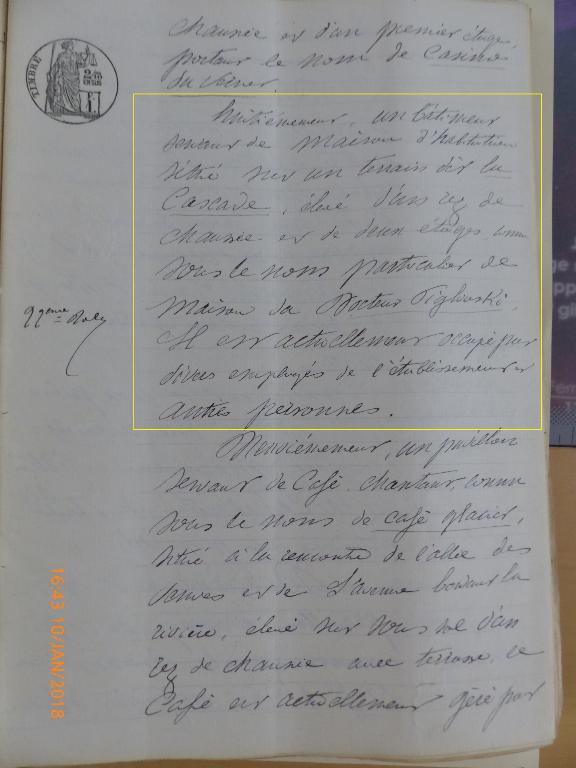 chaussée et d'un premier étage,
portant le nom de Casino
du
TIMBRE
Huitièmement, un bâtiment
servant de maison d'habitation
situé sur un terrain dit la
Cascade, élevé d'un rez de
chaussée et de deux étages, connu
sous le nom particulier de
maison du Docteur
Il est actuellement occupé par
divers employés de l'établissement et
autres personnes.
Neuvièmement, un pavillon
servant de Café chantant, connu
sous le nom de café glacier,
situé à la rencontre de l'allée des
et de l'avenue bordant la
rivière, élevé sur sous sol d'un
rez de chaussée avec terrasse, ce
Café est actuellement géré par
16:43 10/JAN/2018